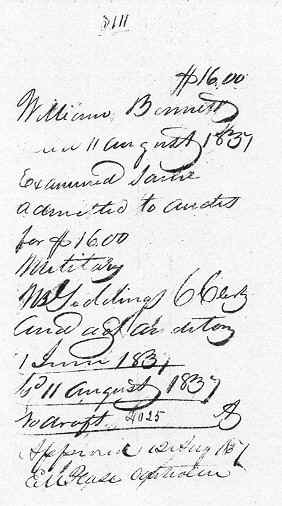 $16.00
William Bennett
11 august 1837
Examined Same
admitted to audit
for $16.00
Military
Giddings C Clerk
and act auditor
1 June 1837
to 11 august 1837
draft 4025
Approved 12 Aug 1837
E M Pease